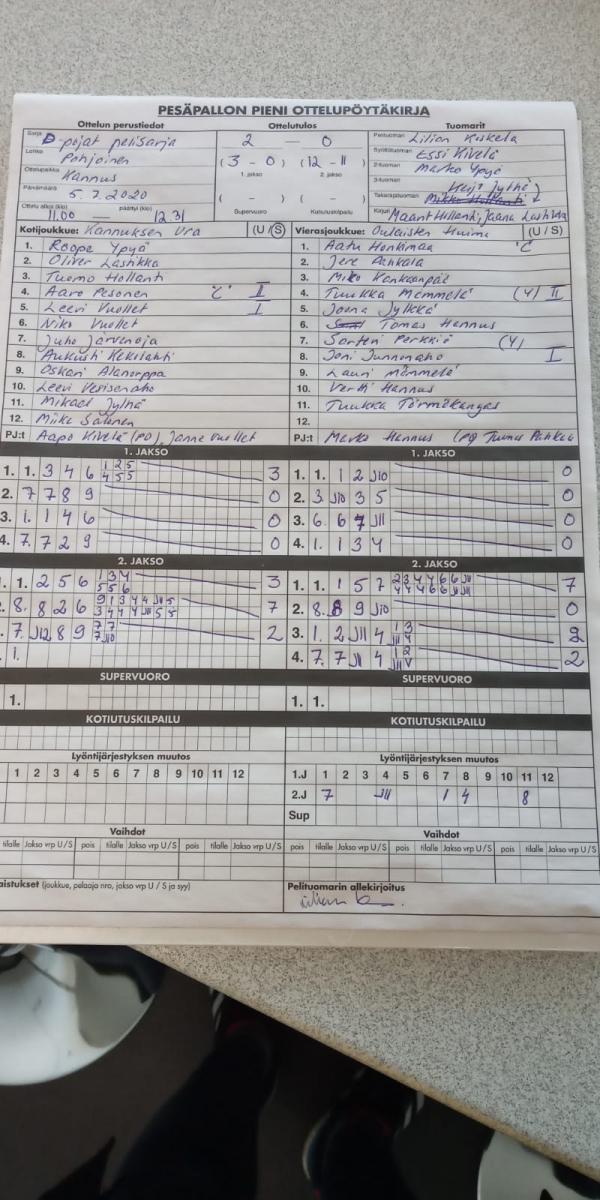 PESÄPALLON PIENI OTTELUPÖYTÄKIRJA
Ottelun perustiedot Ottelutulos Tuomarit
Sarja D-pojat pelisarja 2 — 0 Pelituomari Lilian Koskela
Lohko Pohjoinen (3 - 0) (12 - 11) Syöttötuomari Essi Kivelä
1. jakso 2. jakso
Ottelupaikka Kannus 2-tuomari Marko Ypyä
Päivämäärä 5.7.2020 ( - ) ( - ) 3-tuomari
Takarajatuomari
Ottelu alkoi (klo) 11.00 — päättyi (klo) 12.31 Supervuoro Kotiutuskilpailu Kirjuri
Kotijoukkue: Kannuksen Ura (U/S) Vierasjoukkue: Oulaisten Huima (U/S)
1. Roope Ypyä 1. Aatu Honkimaa 'C'
2. Oliver Lastikka 2. Jere Pahkala
3. Tuomo Hollanti 3. Miko Kankaanpää
4. Aaro Pesonen 'C' II 4. Tuukka Mämmelä (Y) II
5. Leevi Vuollet I 5. Joona Jylkkä
6. Niko Vuollet 6. Tomas Hannus
7. Juho Järvenoja 7. Santeri Perkkiö (Y)
8. Aukusti Kekolahti 8. Joni Junnonaho I
9. Oskari Alanorppa 9. Lauri Mämmelä
10. Leevi Vesisenaho 10. Vertti Hannus
11. Mikael Jylhä 11. Tuukka Törmikangas
12. Miika Salonen 12.
PJ:t Aapo Kivelä (PJ), Janne Vuollet PJ:t Marko Hannus (PJ)
1. JAKSO 1. JAKSO
1. 1. 3 4 6 1 2 5 3 1. 1. 1 2 JI0 0
4 5 5
2. 7 7 8 9 0 2. 3 JI0 3 5 0
3. 1. 1 4 6 0 3. 6. 6 7 JII 0
4. 7. 7 2 9 0 4. 1. 1 3 4 0
2. JAKSO 2. JAKSO
1. 1 2 5 6 1 3 4 3 1. 1. 1 5 7 2 3 4 4 6 6 JII 7
5 5 6 4 4 6 6 JII JII
8. 8 2 6 9 1 3 4 4 JII 5 7 2. 8. 8 9 JI0 0
3 4 4 4 JII 5 5
7. JI2 8 9 7 7 2 3. 1. 2 JII 4 1 3 2
7 JI0 JII 4
1. 4. 7. 7 JII 4 1 2 2
JII V
SUPERVUORO SUPERVUORO
1. 1. 1.
KOTIUTUSKILPAILU KOTIUTUSKILPAILU
Lyöntijärjestyksen muutos Lyöntijärjestyksen muutos
1 2 3 4 5 6 7 8 9 10 11 12 1.J 1 2 3 4 5 6 7 8 9 10 11 12
2.J 7 JII 1 4 8
Sup
Vaihdot Vaihdot
tilalle Jakso vrp U/S pois tilalle Jakso vrp U/S pois tilalle Jakso vrp U/S pois tilalle Jakso vrp U/S pois tilalle Jakso vrp U/S pois tilalle Jakso vrp U/S
aistukset (joukkue, pelaaja nro, jakso vrp U / S ja syy) Pelituomarin allekirjoitus